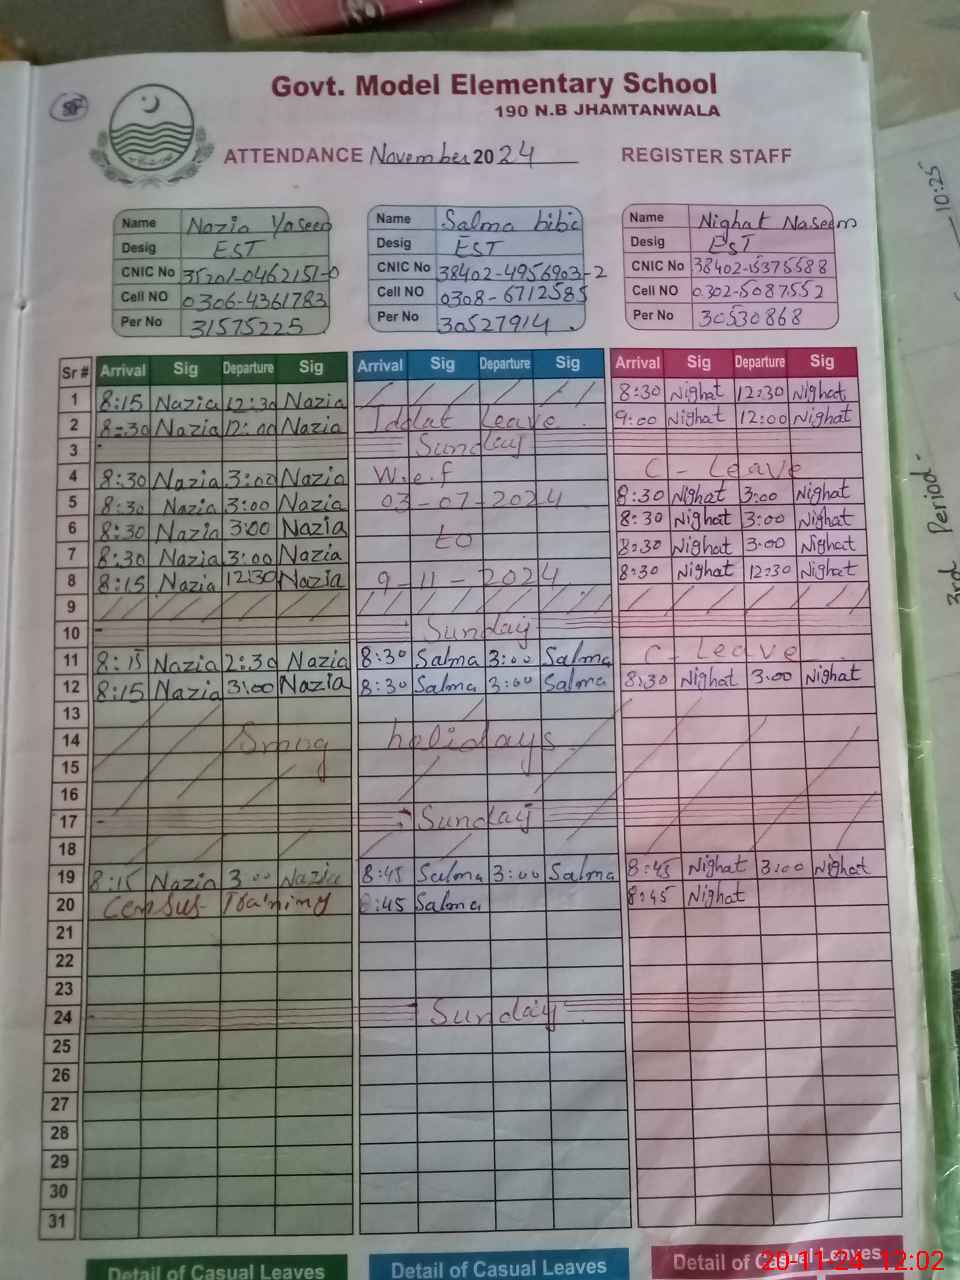 Govt. Model Elementary School
190 N.B JHAMTANWALA
ATTENDANCE November 2024 REGISTER STAFF
Name Nazia Yaseen Name Salma bibi Name Nighat Naseem
Desig EST Desig EST Desig EST
CNIC No 35201-0462151-0 CNIC No 38402-4956903-2 CNIC No
Cell NO 0306-4361783 Cell NO 0308-6712585 Cell NO 0302-5087552
Per No 31575225 Per No 30527914 Per No 30530868
Sr # Arrival Sig Departure Sig Arrival Sig Departure Sig Arrival Sig Departure Sig
1 8:15 Nazia 12:30 Nazia 8:30 Nighat 12:30 Nighat
2 8:30 Nazia 12:00 Nazia Iddat Leave 9:00 Nighat 12:00 Nighat
3 Sunday
4 8:30 Nazia 3:00 Nazia W.e.f C- Leave
5 8:30 Nazia 3:00 Nazia 03-07-2024 8:30 Nighat 3:00 Nighat
6 8:30 Nazia 3:00 Nazia to 8:30 Nighat 3:00 Nighat
7 8:30 Nazia 3:00 Nazia 8:30 Nighat 3:00 Nighat
8 8:15 Nazia 12:30 Nazia 9-11-2024 8:30 Nighat 12:30 Nighat
9
10 Sunday
11 8:15 Nazia 2:30 Nazia 8:30 Salma 3:00 Salma C- Leave
12 8:15 Nazia 3:00 Nazia 8:30 Salma 3:00 Salma 8:30 Nighat 3:00 Nighat
13
14 Smog holidays
15
16
17 Sunday
18
19 8:15 Nazia 3:00 Nazia 8:45 Salma 3:00 Salma 8:45 Nighat 3:00 Nighat
20 Census Training 8:45 Salma 8:45 Nighat
21
22
23
24 Sunday
25
26
27
28
29
30
31
Detail of Casual Leaves Detail of Casual Leaves Detail of Casual Leaves
20-11-24 12:02
3rd Period-
10:25